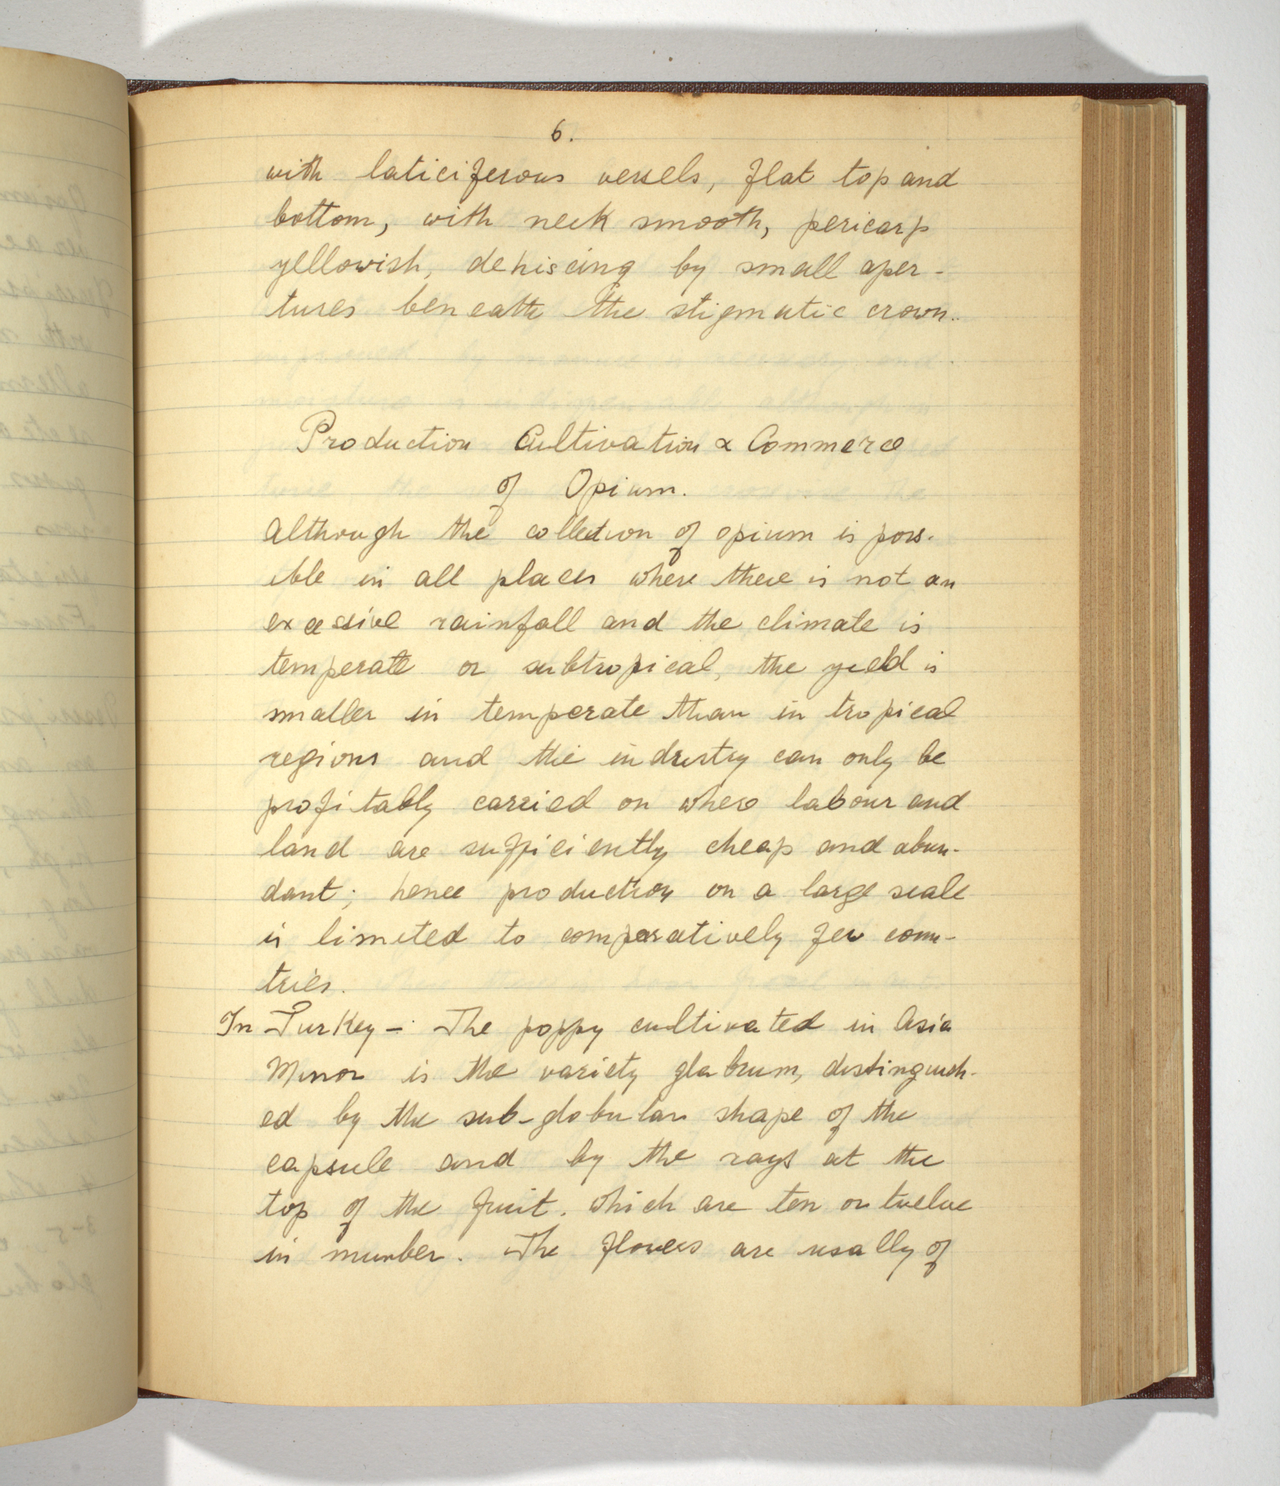 6.
with laticiferous vessels, flat top and
bottom, with neck smooth, pericarp
yellowish, dehiscing by small aper-
tures beneath the stigmatic crown.
Production Cultivation & Commerce
of Opium.
Although the collection of opium is poss-
ible in all places where there is not an
excessive rainfall and the climate is
temperate or subtropical, the yield is
smaller in temperate than in tropical
regions and the industry can only be
profitably carried on where labour and
land are sufficiently cheap and abun-
dant; hence production on a large scale
is limited to comparatively few coun-
tries.
In Turkey -: The poppy cultivated in Asia
Minor is the variety glabrum, distinguish-
ed by the sub-globular shape of the
capsule and by the rays at the
top of the fruit. which are ten or twelve
in number. The flowers are usally of